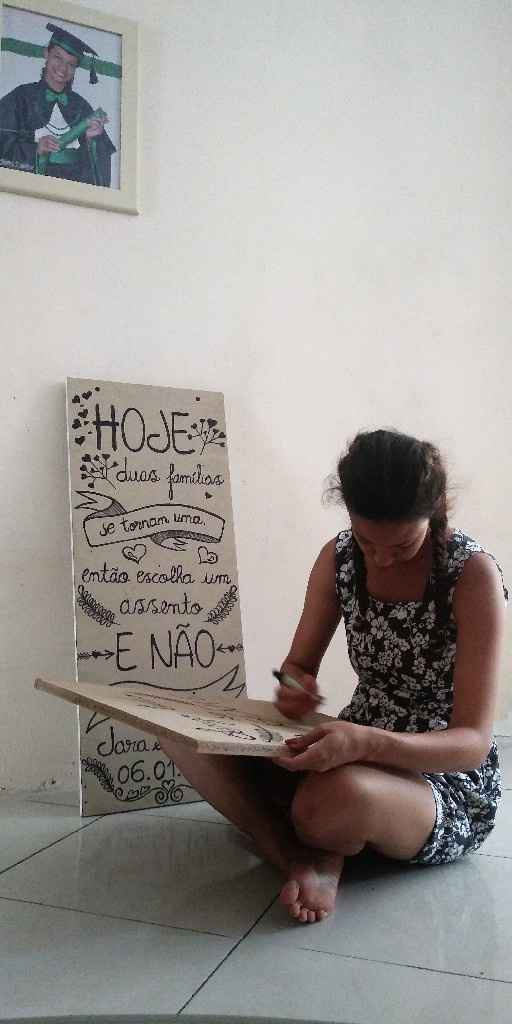 HOJE
duas famílias
se tornam uma,
então escolha um
assento
E NÃO
Jara
06.01